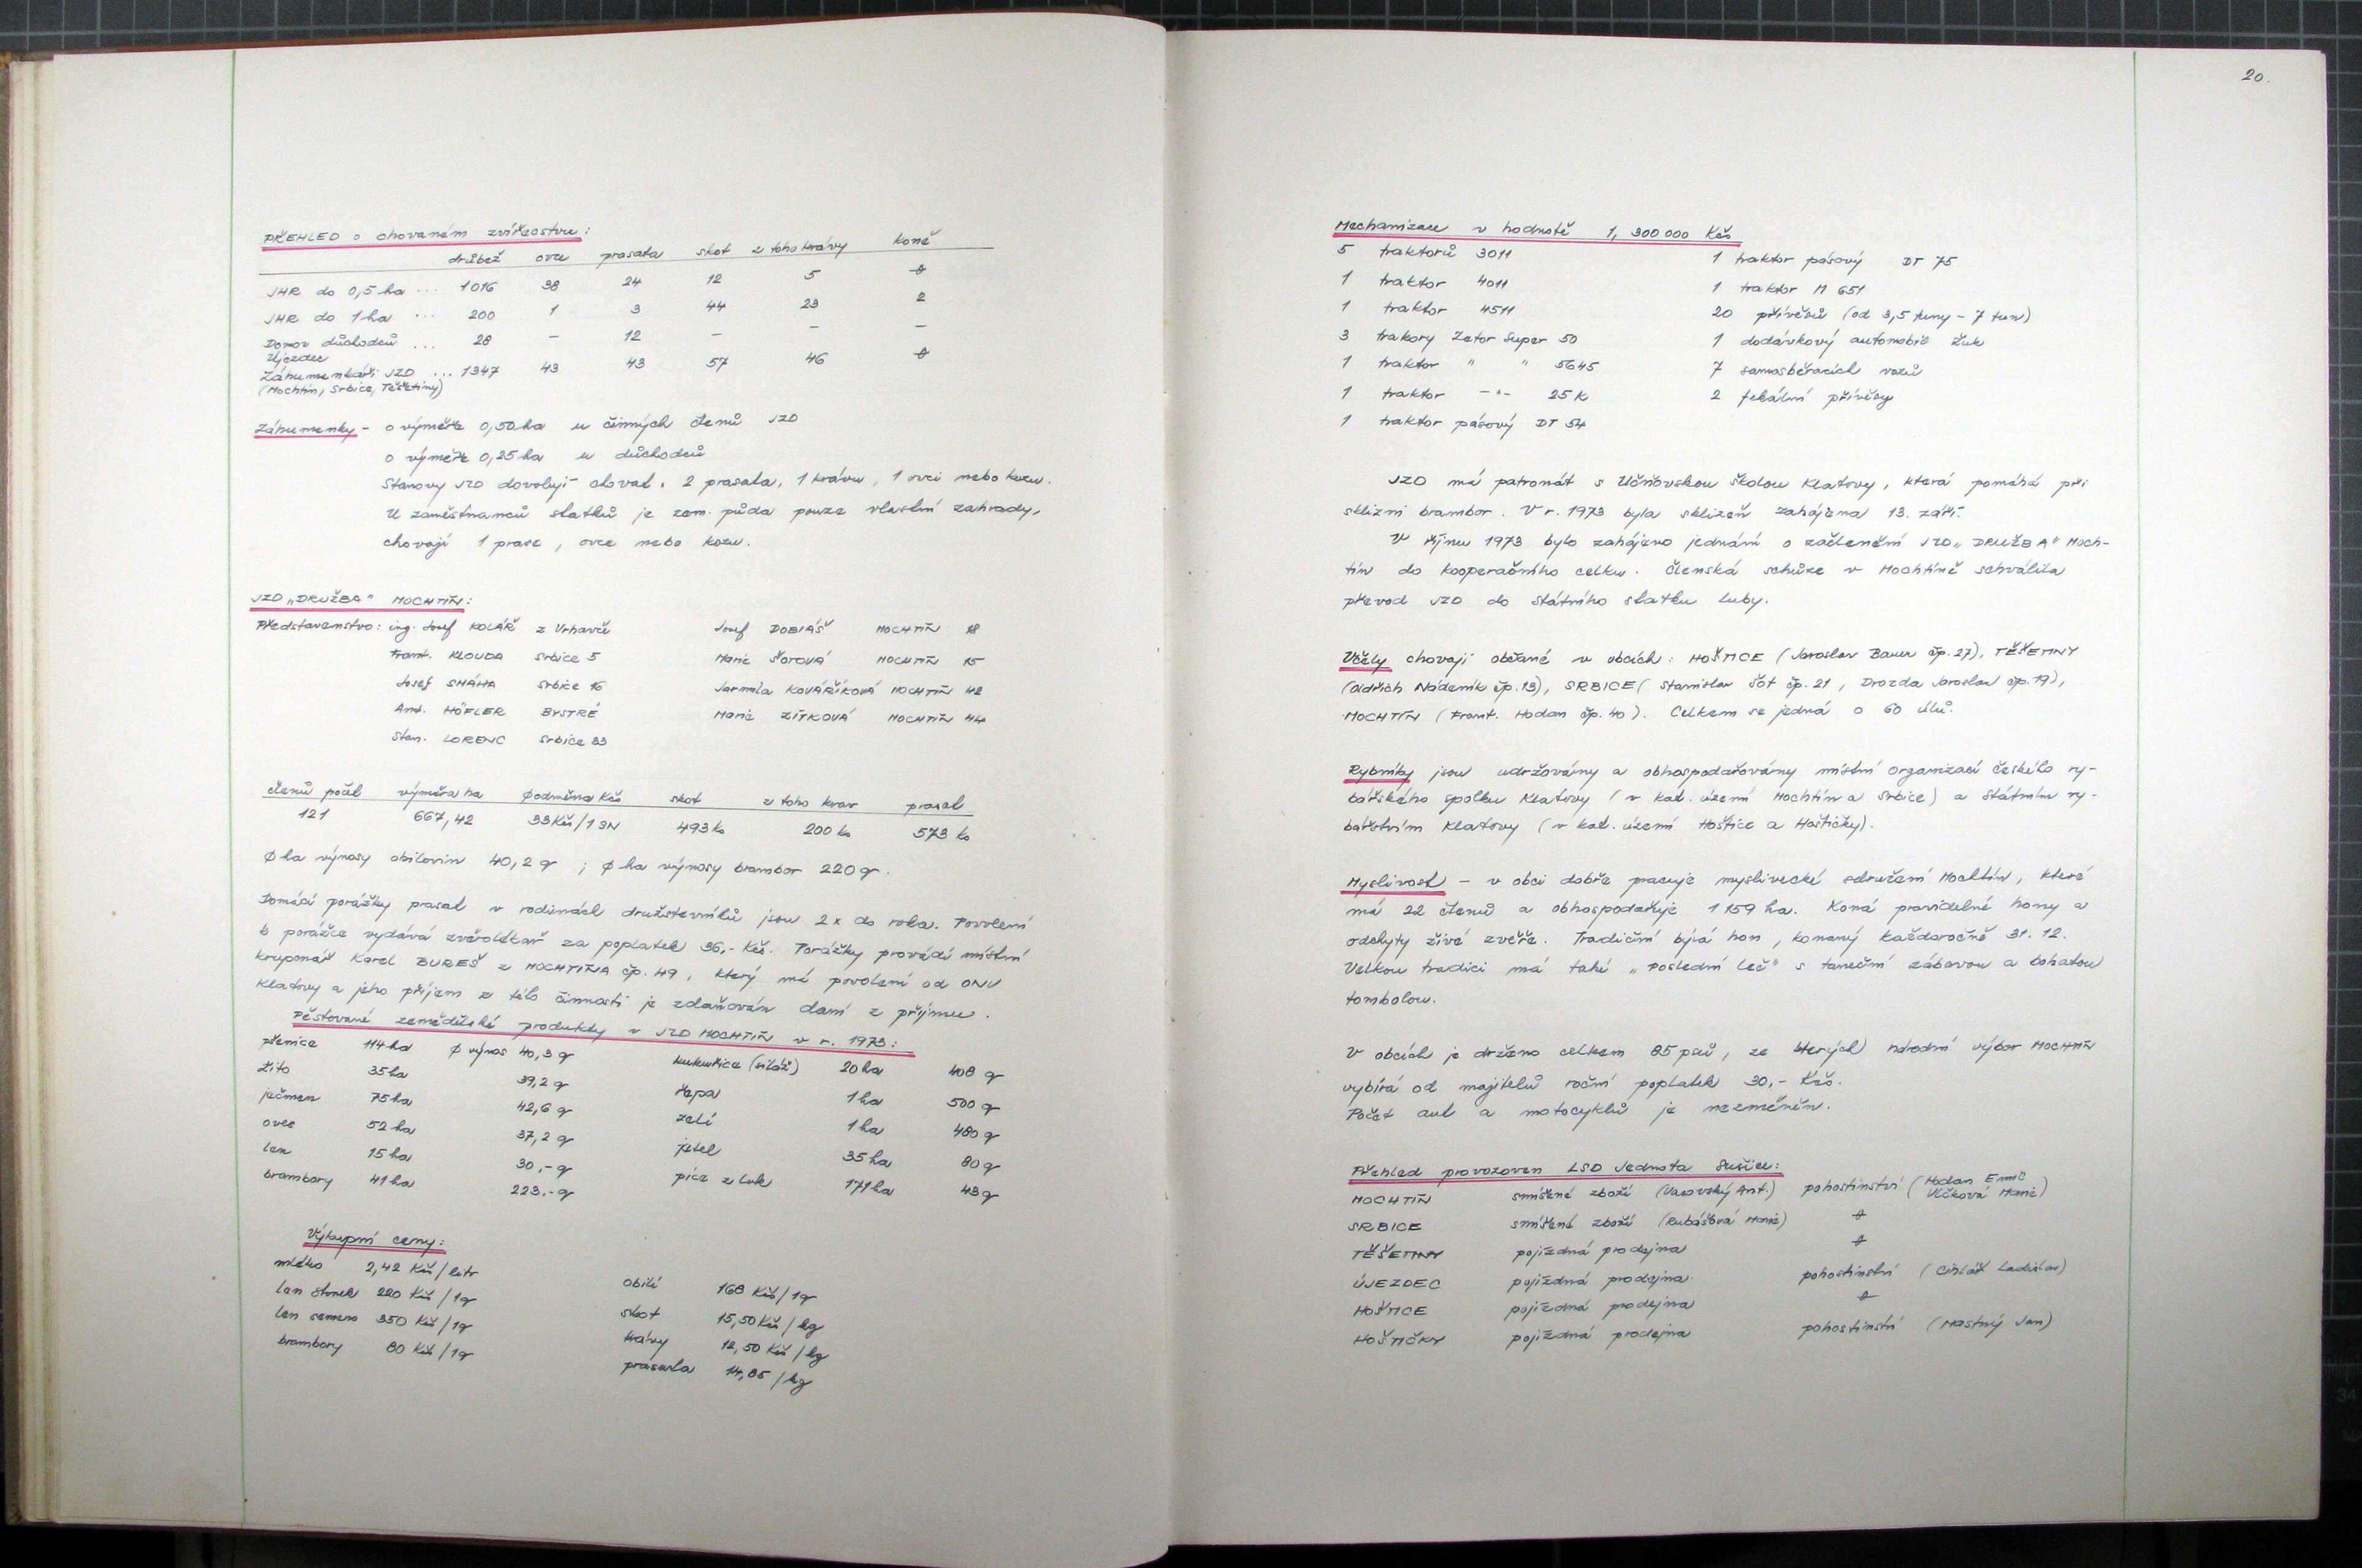 PŘEHLED o chovaném zvířectvu:
drůbež ovce prasata skot z toho krávy koně
JHR do 0,5 ha ... 1016 38 24 12 5 0
JHR do 1 ha ... 200 1 3 44 23 2
Domov důchodců ... 28 – 12 – – –
Újezdec
Záhumenkáři JZD ... 1347 43 43 57 46 0
(Mochtín, Srbice, Těšetiny)
Záhumenky – o výměře 0,50 ha u činných členů JZD
o výměře 0,25 ha u důchodců
Stanovy JZD dovolují chovat: 2 prasata, 1 krávu, 1 ovci nebo kozu.
U zaměstnanců statků je zem. půda pouze vlastní zahrady,
chovají 1 prase, ovce nebo kozu.
JZD „DRUŽBA" MOCHTÍN:
Představenstvo: ing. Josef KOLÁŘ z Vrhavče Josef DOBIÁŠ MOCHTÍN 18
Frant. KLOUDA Srbice 5 Marie ŠOTOVÁ MOCHTÍN 15
Josef SMÁHA Srbice 16 Jarmila KOVÁŘÍKOVÁ MOCHTÍN 42
Ant. HÖFLER BYSTRÉ Marie ZÍTKOVÁ MOCHTÍN 44
Stan. LORENC Srbice 33
členů počet výměra ha ϕ odměna Kčs skot z toho krav prasat
121 667,42 33 Kčs/1 SN 493 ks 200 ks 573 ks
ϕ ha výnosy obilovin 40,2 q ; ϕ ha výnosy brambor 220 q.
Domácí porážky prasat v rodinách družstevníků jsou 2x do roka. Povolení
k porážce vydává zvěrolékař za poplatek 36,- Kčs. Porážky provádí místní
kruponář Karel BUREŠ z MOCHTÍNA čp. 49, který má povolení od ONV
Klatovy a jeho příjem z této činnosti je zdaňován daní z příjmu.
Pěstované zemědělské produkty v JZD MOCHTÍN v r. 1973:
pšenice 114 ha ϕ výnos 40,3 q kukuřice (siláž) 20 ha 408 q
žito 35 ha 39,2 q řepa 1 ha 500 q
ječmen 75 ha 42,6 q zelí 1 ha 480 q
oves 52 ha 37,2 q jetel 35 ha 80 q
len 15 ha 30,- q píce z luk 171 ha 43 q
brambory 41 ha 223.- q
Výkupní ceny:
mléko 2,42 Kčs/litr obilí 168 Kčs/1q
len stonek 220 Kčs/1q skot 15,50 Kčs/kg
len semeno 350 Kčs/1q krávy 12,50 Kčs/kg
brambory 80 Kčs/1q prasata 14,85/kg
20.
Mechanizace v hodnotě 1,300 000 Kčs
5 traktorů 3011 1 traktor pásový DT 75
1 traktor 4011 1 traktor M 651
1 traktor 4511 20 přívěsů (od 3,5 tuny – 7 tun)
3 trakory Zetor Super 50 1 dodávkový automobil Žuk
1 traktor " " 5645 7 samosběracích vozů
1 traktor –"– 25 K 2 fekální přívěsy
1 traktor pásový DT 54
JZD má patronát s Učňovskou školou Klatovy, která pomáhá při
sklizni brambor. V r. 1973 byla sklizeň zahájena 13. září.
V říjnu 1973 bylo zahájeno jednání o začlenění JZD „DRUŽBA" Moch-
tín do kooperačního celku. Členská schůze v Mochtíně schválila
převod JZD do Státního statku Luby.
Včely chovají občané v obcích: HOŠTICE (Jaroslav Bauer čp. 27), TĚŠETINY
(Oldřich Nádeník čp. 13), SRBICE (Stanislav Šot čp. 21, Drozda Jaroslav čp. 19),
MOCHTÍN (Frant. Hodan čp. 40). Celkem se jedná o 60 úlů.
Rybníky jsou udržovány a obhospodařovány místní organizací českého ry-
bářského spolku Klatovy (v kat. území Mochtín a Srbice) a Státním ry-
bářstvím Klatovy (v kat. území Hoštice a Hoštičky).
Myslivost – v obci dobře pracuje myslivecké sdružení Mochtín, které
má 22 členů a obhospodařuje 1 159 ha. Koná pravidelné hony a
odchyty živé zvěře. Tradiční bývá hon, konaný každoročně 31. 12.
Velkou tradici má také „Poslední leč" s taneční zábavou a bohatou
tombolou.
V obcích je drženo celkem 85 psů, ze kterých národní výbor MOCHTÍN
vybírá od majitelů roční poplatek 30,- Kčs.
Počet aut a motocyklů je nezměněn.
Přehled provozoven LSD Jednota Sušice:
MOCHTÍN smíšené zboží (Vacovský Ant.) pohostinství (Hodan Emil
Vlčková Marie)
SRBICE smíšené zboží (Rubášová Marie) 0
TĚŠETINY pojízdná prodejna 0
ÚJEZDEC pojízdná prodejna pohostinství (Cihlář Ladislav)
HOŠTICE pojízdná prodejna 0
HOŠTIČKY pojízdná prodejna pohostinství (Mastný Jan)